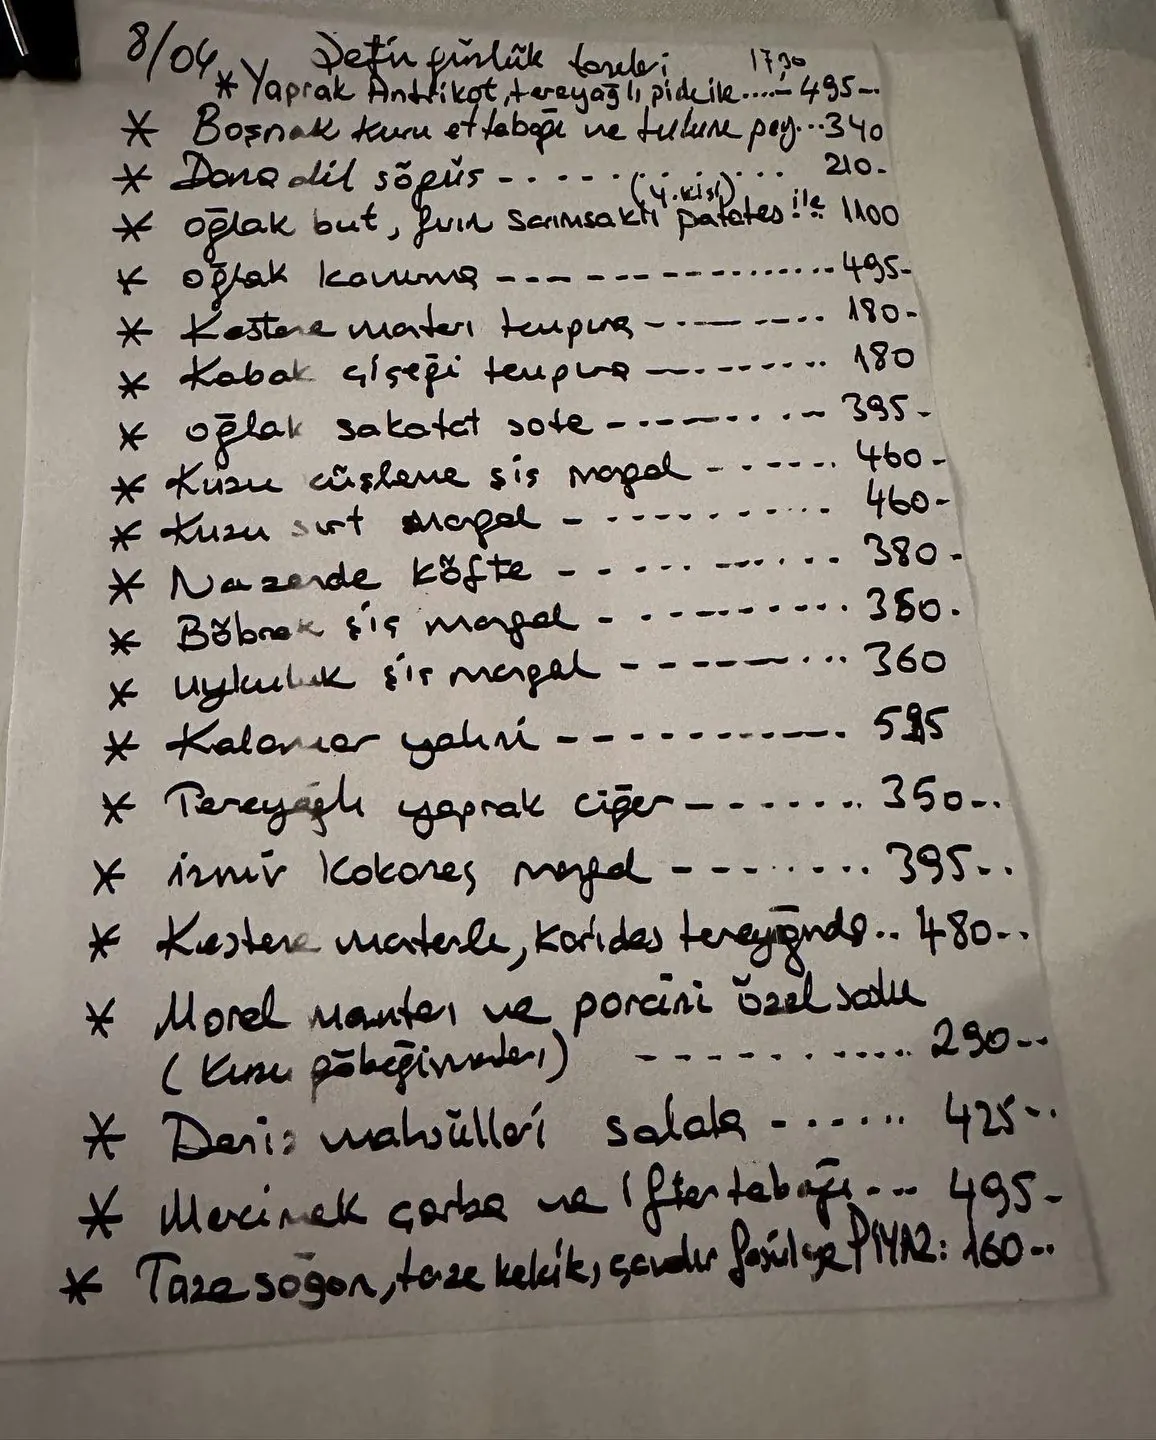 8/04 Şefin günlük tavsiyeleri 1730
* Yaprak Antrikot, tereyağlı pide ile....- 495-.
* Boşnak kuru et tabağı ve tulum pey...340
* Dana dil söğüş - - . - . . . . . . . . 210-
(4.kişi)
* oğlak but, fırın sarımsaklı patates ile 1100
* oğlak kavurma - - - - - - - - - ........495-
* Kestane mantarı tempura - - . - - - . . . . 180-
* Kabak çiçeği tempura - - - . - . . . . . . 180
* oğlak sakatat sote - - - - - - . . . - 395-
* Kuzu çüşleme şiş mangal - - - - - . 460-
* Kuzu sırt mangal - . - - - - . - . . . 460-
* Nazende köfte - - - . - - - - . . . . 380-
* Böbrek şiş mangal - . - - - - - . . . . 360.
* uykuluk şiş mangal - - - - - - - . . . 360
* Kalamar yahni - - - - - - - - - - . 595
* Tereyağlı yaprak ciğer - - - - - - . . 350-..
* izmir kokoreç mangal - - - - . . . . . 395-..
* Kestane mantarlı, karides tereyağında.. 480-..
* Morel mantarı ve porcini özel soslu
(Kuzu göbeği mantarı) - - - - - - . . . . . 290--.
* Deniz mahsülleri salata - - - - - . . 425-..
* Mercimek çorba ve iftar tabağı. - - 495-
* Taze soğan, taze kekik, çandır fasulye PİYAZ: 160-..